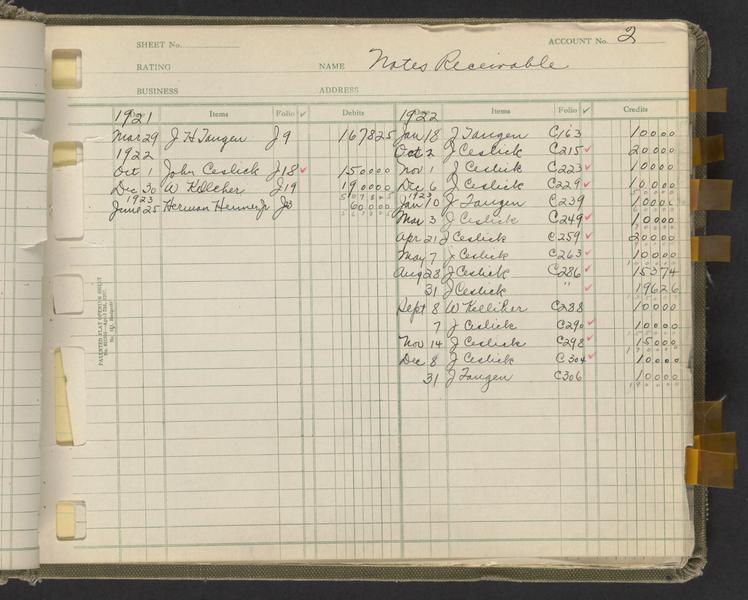 SHEET No. ACCOUNT No. 2
RATING NAME Notes Receivable
BUSINESS ADDRESS
1921 Items Folio ✓ Debits 1922 Items Folio ✓ Credits
Mar 29 J H Tangen J9 167825 Jan 18 J Tangen C163 10000
1922 Oct 2 J Ceslick C215 ✓ 20000
Oct 1 John Ceslick J18 ✓ 150000 Nov 1 J Ceslick C223 ✓ 10000
Dec 30 W Kelleher J19 190000 Dec 6 J Ceslick C229 ✓ 10000
1923 507825 1923
June 25 Herman J3 60000 Jan 10 J Tangen C239 1000
Mar 3 J Ceslick C249 ✓ 10000
Apr 21 J Ceslick C259 ✓ 20000
May 7 J Ceslick C263 ✓ 10000
Aug 28 J Ceslick C286 ✓ 15374
31 J Ceslick " ✓ 19626
Sept 8 W Kelliher C288 10000
7 J Ceslick C290 ✓ 10000
Nov 14 J Ceslick C298 ✓ 15000
Dec 8 J Ceslick C304 ✓ 10000
31 J Tangen C306 10000
PATENTED FLAT OPENING SHEET